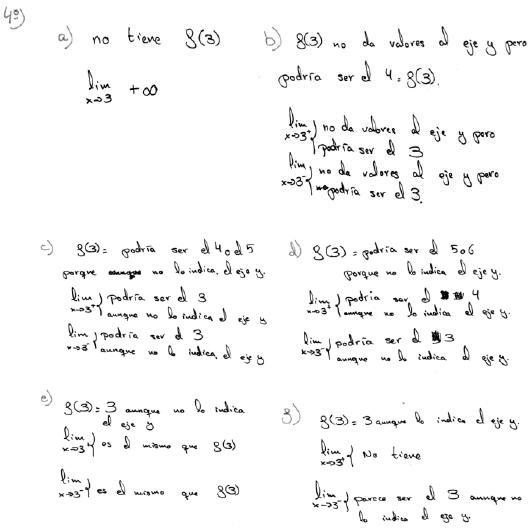 4º)
a) no tiene f(3)
lim x→3 +∞
b) f(3) no da valores al eje y pero
podría ser el 4 = f(3).
lim x→3⁺ } no da valores al eje y pero
podría ser el 3
lim x→3⁻ } no da valores al eje y pero
podría ser el 3.
c) f(3) = podría ser el 4 o el 5
porque no lo indica el eje y.
lim x→3⁺ } podría ser el 3
aunque no lo indica el eje y
lim x→3⁻ } podría ser el 3
aunque no lo indica el eje y
d) f(3) = podría ser el 5 o 6
porque no lo indica el eje y.
lim x→3⁺ } podría ser el 4
aunque no lo indica el eje y.
lim x→3⁻ } podría ser el 3
aunque no lo indica el eje y.
e) f(3) = 3 aunque no lo indica
el eje y
lim x→3⁺ } es el mismo que f(3)
lim x→3⁻ } es el mismo que f(3)
f) f(3) = 3 aunque lo indica el eje y.
lim x→3⁺ } No tiene
lim x→3⁻ } parece ser el 3 aunque no
lo indica el eje y.